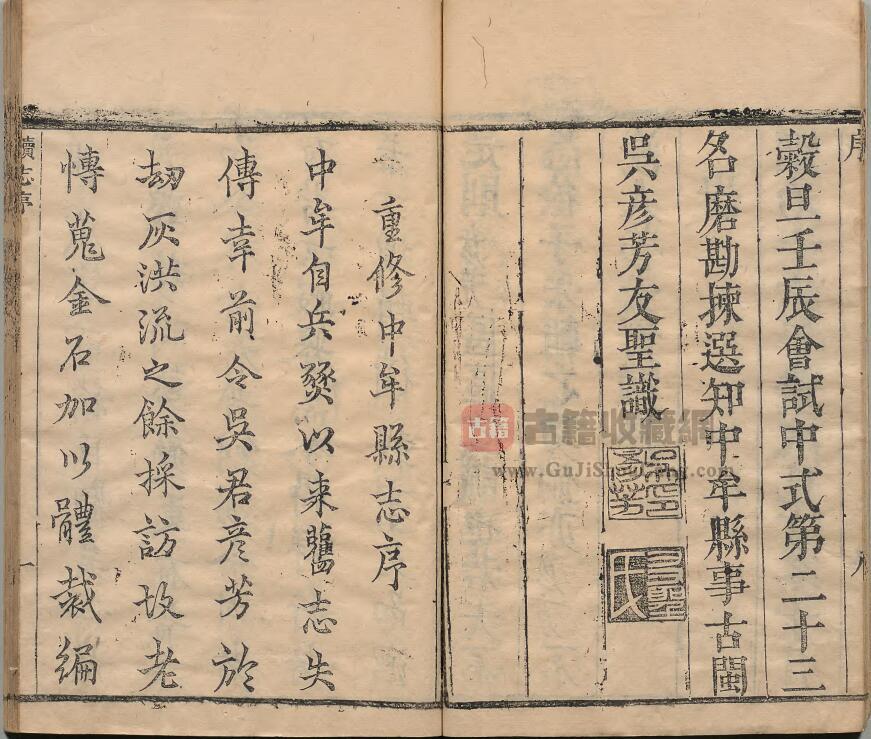 序
八
穀旦壬辰會試中式第二十三
名磨勘揀選知中牟縣事古閩
吳彥芳友聖識
重修中牟縣志序
中牟自兵燹以來舊志失
傳幸前令吳君彥芳於
劫灰洪流之餘採訪故老
慱蒐金石加以體裁編
續志序
一
古籍
古籍收藏網
www.GuJiShouCang.com